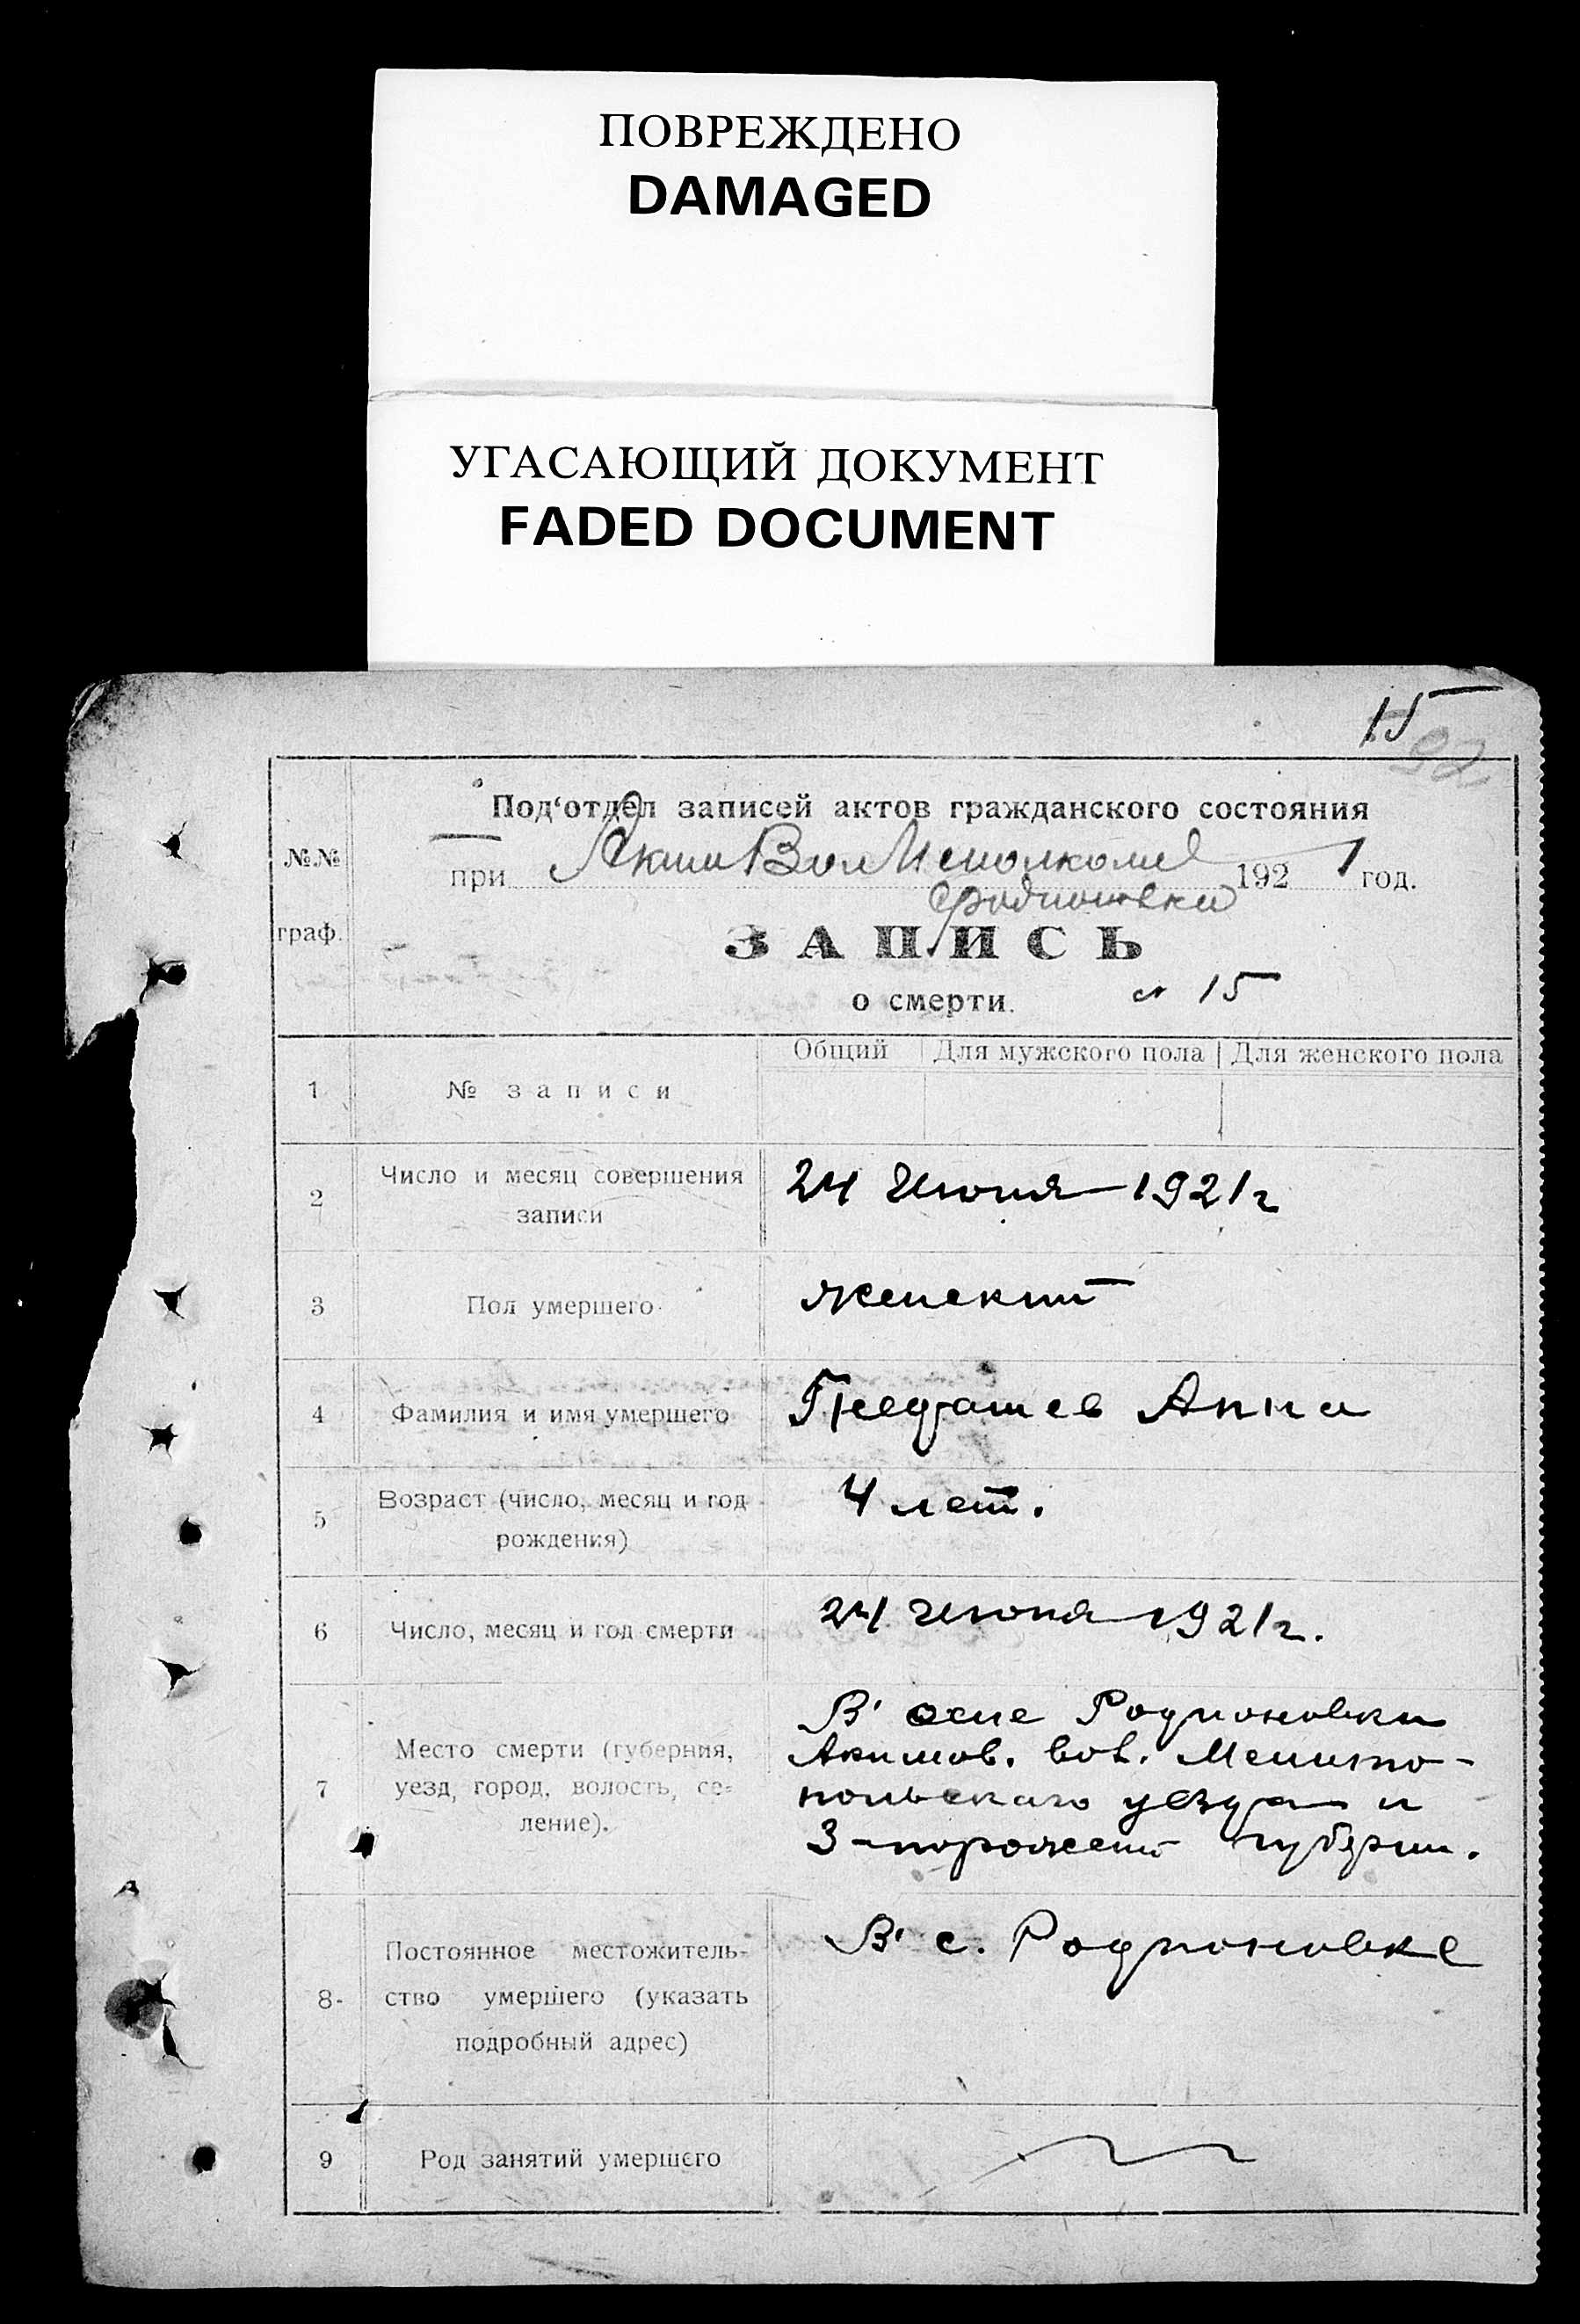 ПОВРЕЖДЕНО
DAMAGED
УГАСАЮЩИЙ ДОКУМЕНТ
FADED DOCUMENT
15
92
Под‘отдел записей актов гражданского состояния
при Аким Вол Исполкоме 1921 год.
с Родионовки
№№ граф.
ЗАПИСЬ
о смерти. № 15
Общий Для мужского пола Для женского пола
1 № записи
2 Число и месяц совершения 24 Июня 1921 г
записи
3 Пол умершего женский
4 Фамилия и имя умершего Анна
5 Возраст (число, месяц и год 4 лет.
рождения)
6 Число, месяц и год смерти 24 Июня 1921 г.
В Родионовки
Место смерти (губерния, Акимов. вол. Мелито-
7 уезд, город, волость, се- польскаго уезда и
ление). З-порожской губернии.
В с. Родионовке
Постоянное местожитель-
8 ство умершего (указать
подробный адрес)
9 Род занятий умершего